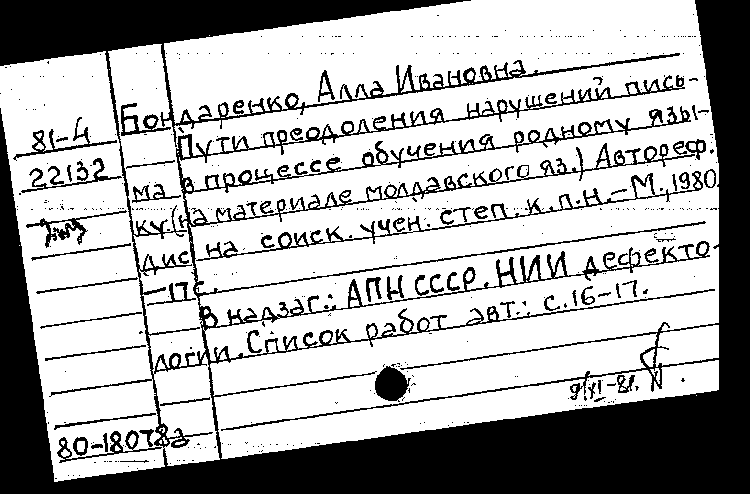 Бондаренко, Алла Ивановна.
81-4
22132
Пути преодоления нарушений пись-
ма в процессе обучения родному язы-
ку. (на материале молдавского яз.) Автореф.
дис на соиск. учен. степ. к.п.н. – М., 1980.
В надзаг.: АПН СССР. НИИ дефекто-
логии. Список работ авт.: с.16-17.
9/XI-81.
80-18078а